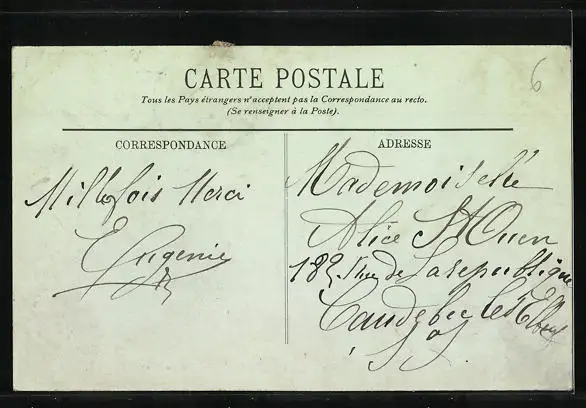 6
CARTE POSTALE
Tous les Pays étrangers n'acceptent pas la Correspondance au recto.
(Se renseigner à la Poste).
CORRESPONDANCE
ADRESSE
Mille fois Merci
Eugenie
Mademoiselle
Alice St Ouen
189 Rue de La republique
Caudebec les Elbeuf